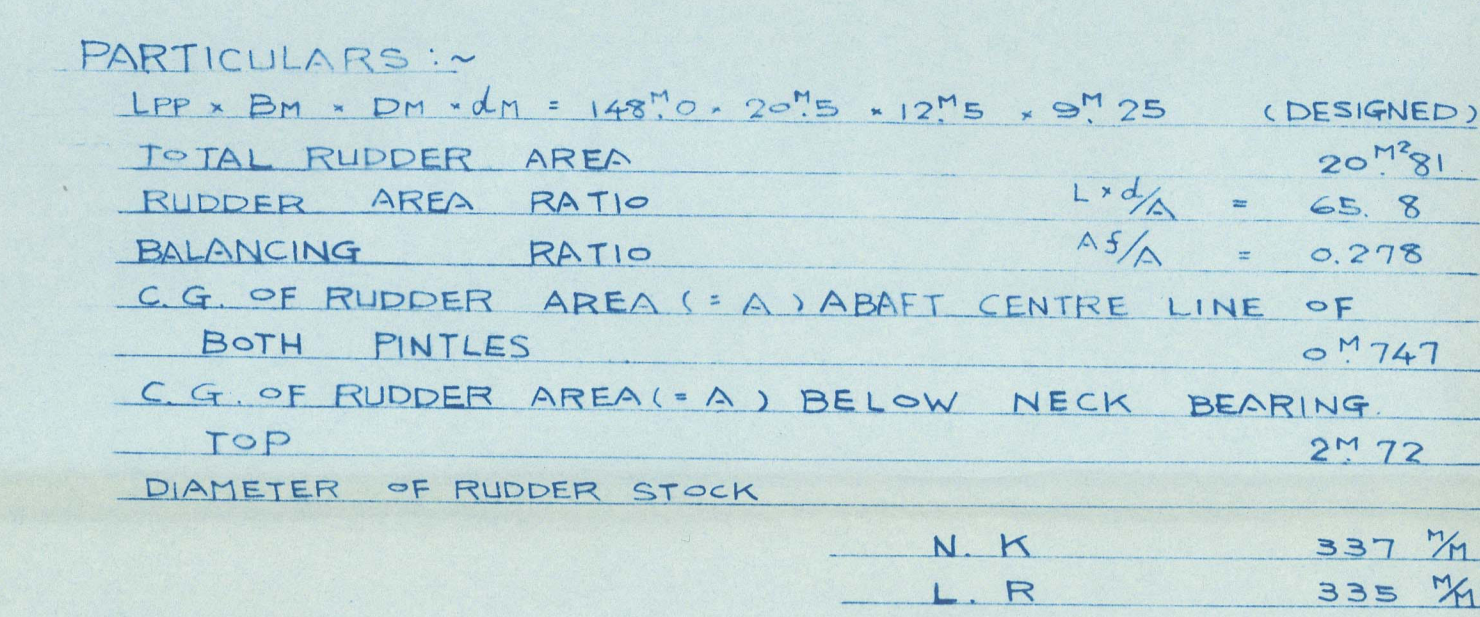 PARTICULARS :~
LPP × BM × DM × dM = 148.M0 × 20.M5 × 12.M5 × 9.M25 (DESIGNED)
TOTAL RUDDER AREA 20.M²81
RUDDER AREA RATIO L×d/A = 65.8
BALANCING RATIO Af/A = 0.278
C.G. OF RUDDER AREA (= A) ABAFT CENTRE LINE OF
BOTH PINTLES 0.M747
C.G. OF RUDDER AREA (= A) BELOW NECK BEARING.
TOP 2.M72
DIAMETER OF RUDDER STOCK
N. K 337 M/M
L. R 335 M/M